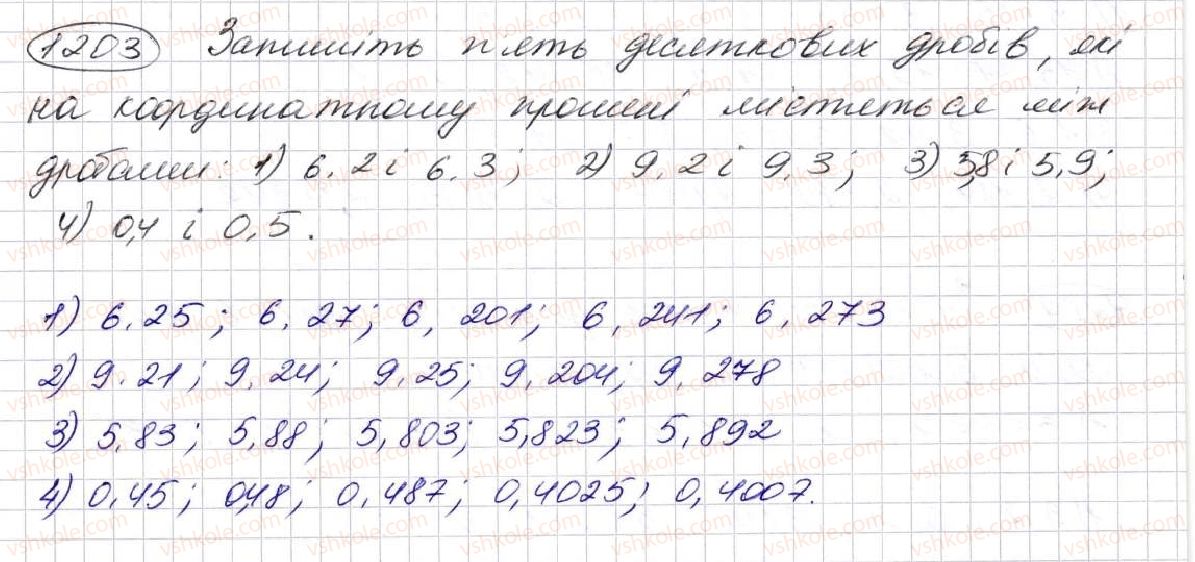 1203 Запишіть п'ять десяткових дробів, які
на координатному промені містяться між
дробами: 1) 6.2 і 6.3; 2) 9.2 і 9.3; 3) 5,8 і 5,9;
4) 0,4 і 0,5.
1) 6.25; 6.27; 6,201; 6,241; 6,273
2) 9.21; 9,24; 9,25; 9,204; 9,278
3) 5,83; 5,88; 5,803; 5,823; 5,892
4) 0,45; 0,48; 0,487; 0,4025; 0,4007.